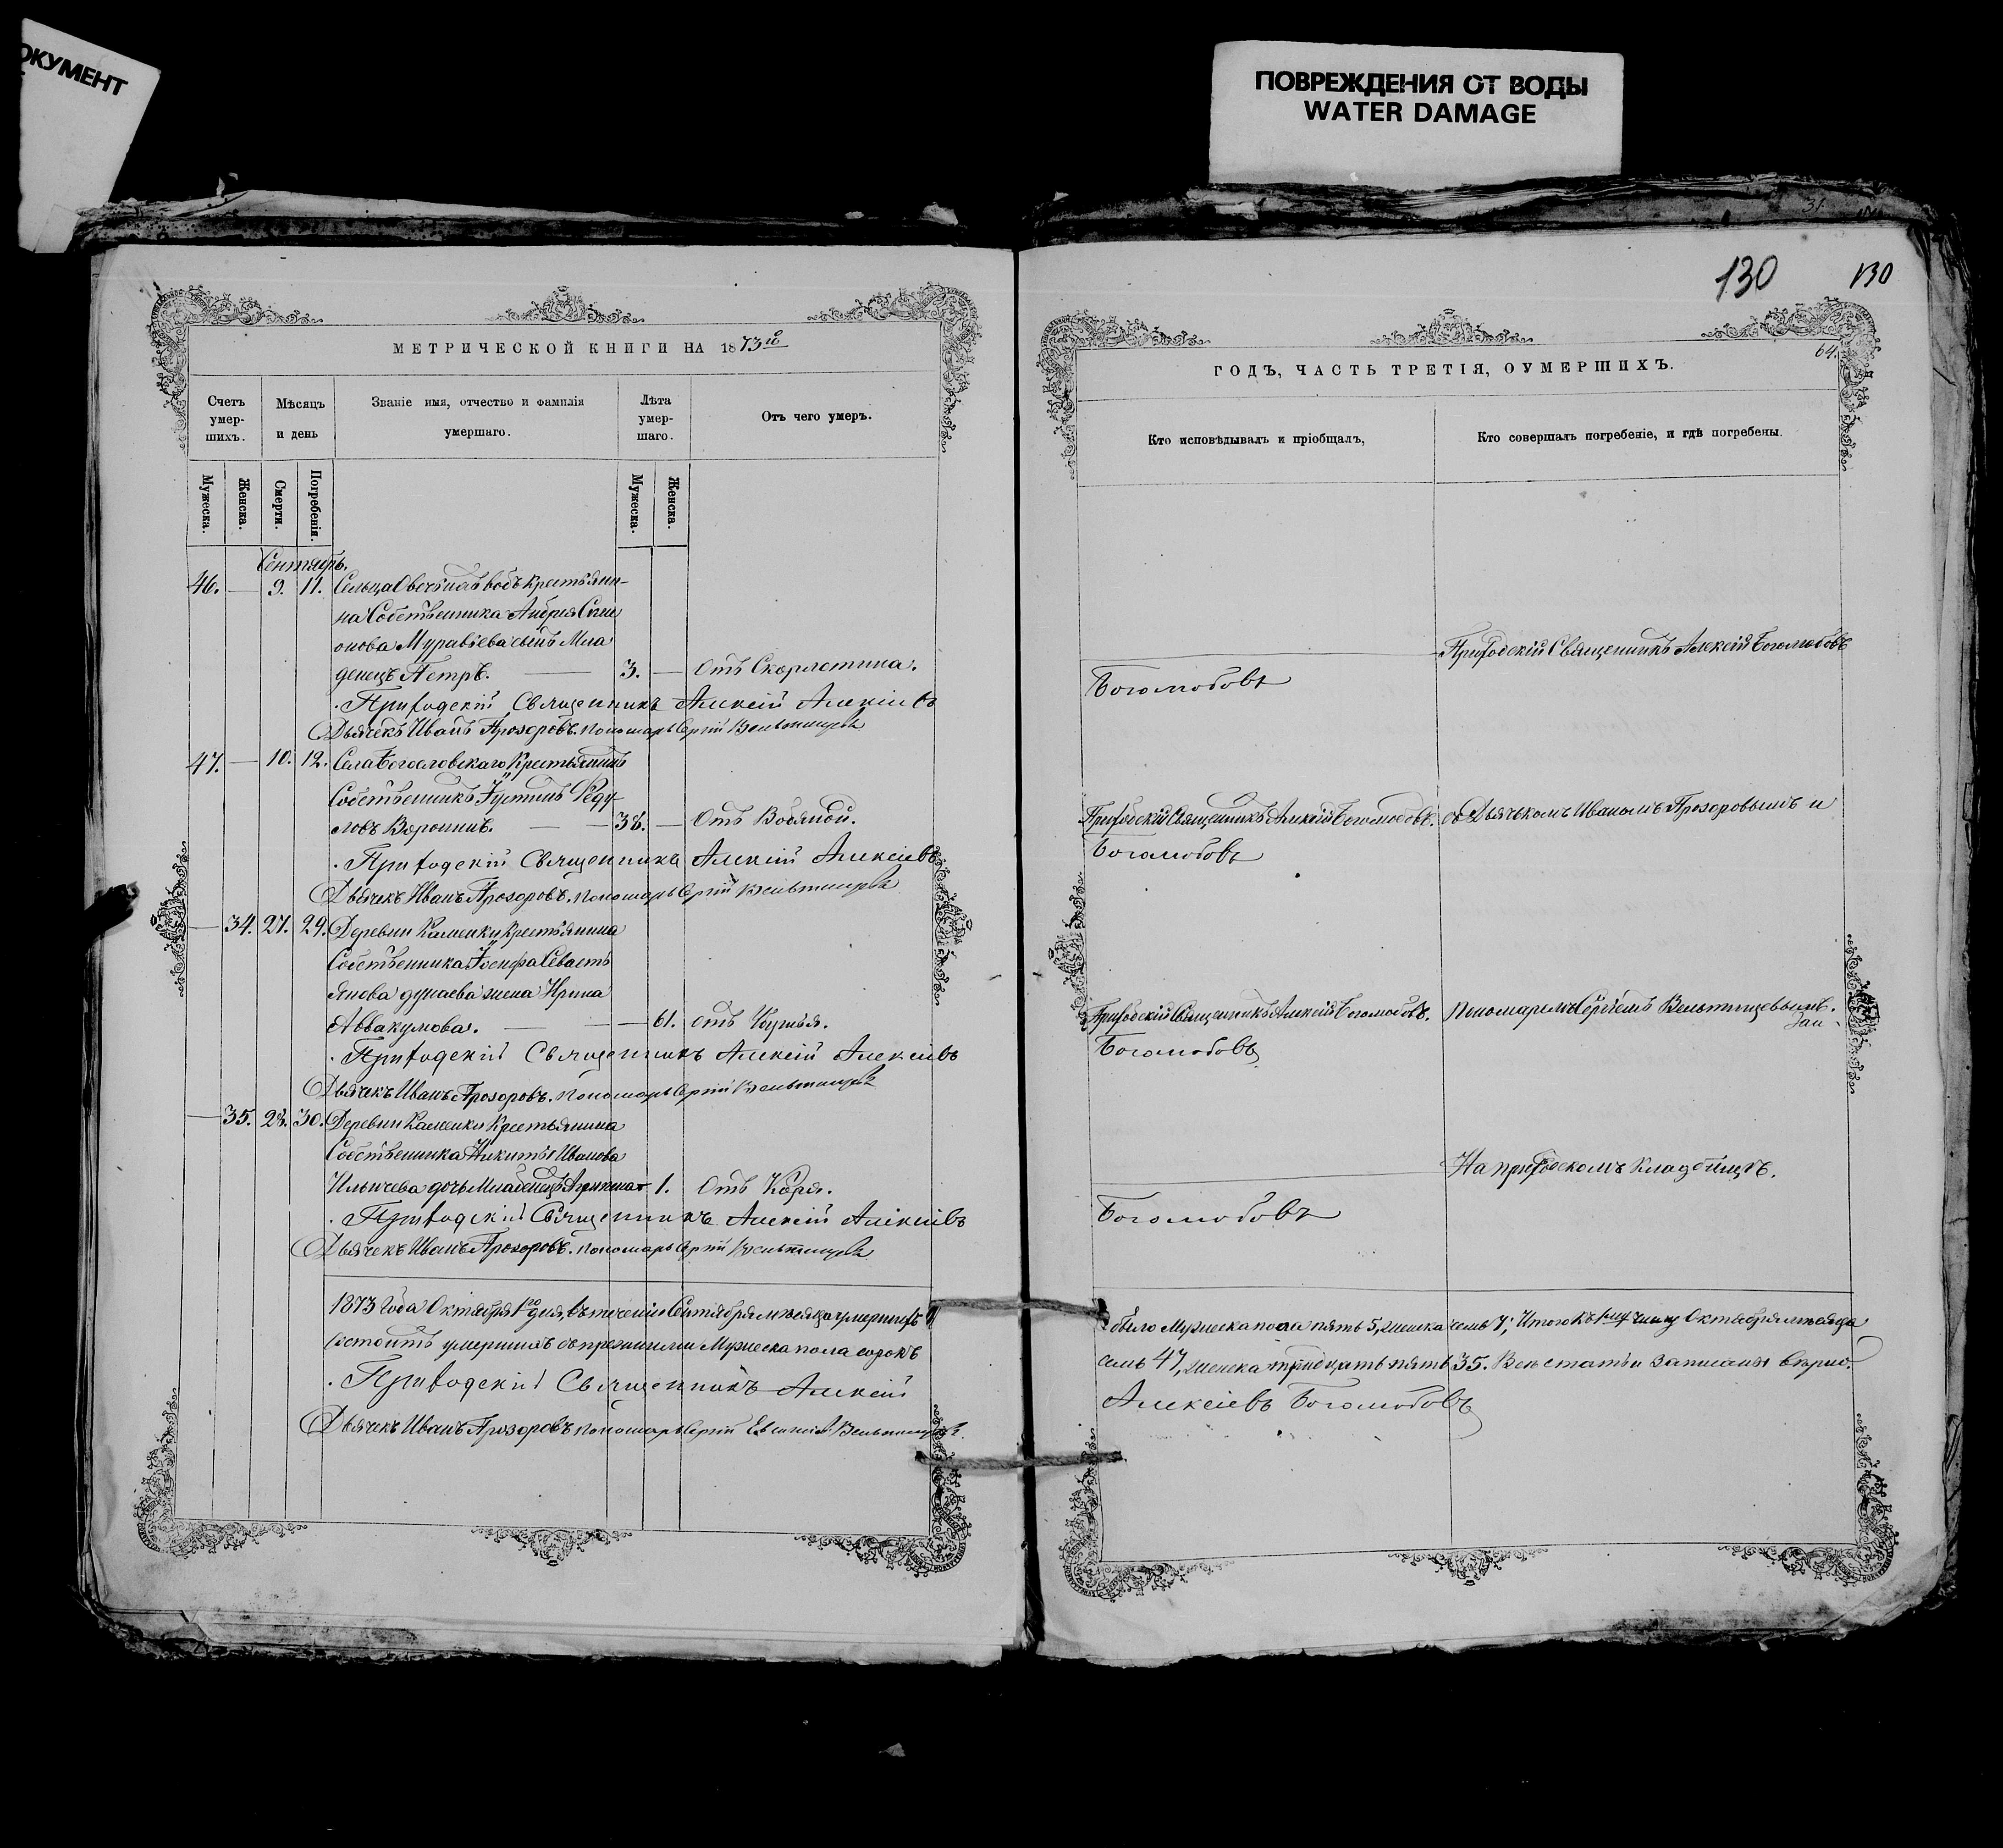 ОКУМЕНТ
ПОВРЕЖДЕНИЯ ОТ ВОДЫ
WATER DAMAGE
МЕТРИЧЕСКОЙ КНИГИ НА 1873й
Счетъ умер-шихъ.
Мѣсяцъ и день
Званіе имя, отчество и фамилія умершаго.
Лѣта умер-шаго.
Отъ чего умеръ.
Мужеска.
Женска.
Смерти.
Погребенія.
Мужеска.
Женска.
Сентябрь.
46. — 9. 11. Сельца крестьяни-
на Собственника Андрея Сими
онова Муравьева сынъ Мла
денецъ Петръ. — 3. — Отъ Скорлотина.
Приходскій Священникъ Алексій Алексіевъ
Дьячекъ Иванъ Прозоровъ. Пономарь Сергій Вельтищевъ
47. — 10. 12. Села Богословскаго Крестьянинъ
Собственникъ Іустинъ Ѳеду
ловъ Воронинъ. — 38. — Отъ Водяной.
Приходскій Священникъ Алексій Алексіевъ
Дьячекъ Иванъ Прозоровъ. Пономарь Сергій Вельтищевъ
— 34. 27. 29. Деревни Каменки Крестьянина
Собственника Іосифа Севасть
янова Дунаева жена Ирина
Аввакумова. — 61. отъ
Приходскій Священникъ Алексій Алексіевъ
Дьячекъ Иванъ Прозоровъ. Пономарь Сергій Вельтищевъ
— 35. 28. 30. Деревни Каменки Крестьянина
Собственника Никиты Иванова
Ильичева дочь Младенецъ 1. Отъ Коря.
Приходскій Священникъ Алексій Алексіевъ
Дьячекъ Иванъ Прозоровъ. Пономарь Сергій Вельтищевъ
1873 Года Октября 1го дня, въ теченіе Сентября мѣсяца умершихъ
Состоитъ умершихъ съ прежними Мужеска пола сорокъ
Приходскій Священникъ Алексій
Дьячекъ Иванъ Прозоровъ Пономарь Сергій Вельтищевъ.
31
130
130
64.
ГОДЪ, ЧАСТЬ ТРЕТІЯ, О УМЕРШИХЪ.
Кто исповѣдывалъ и пріобщалъ,
Кто совершалъ погребеніе, и гдѣ погребены.
Приходскій Священникъ Алексій Боголюбовъ
Боголюбовъ
Приходскій Священникъ Алексій Боголюбовъ. съ Дьячькомъ Иваномъ Прозоровымъ и
Боголюбовъ
Приходскій Священникъ Алексій Боголюбовъ. Пономаремъ Сергіемъ Вельтищевымъ.
Боголюбовъ
На приходскомъ Кладбищѣ.
Боголюбовъ
было Мужеска пола пять 5, женска семь 7, Итого къ числу Октября мѣсяца
семь 47, женска тридцать пять 35. Всѣ статьи записаны вѣрно.
Алексіевъ Боголюбовъ